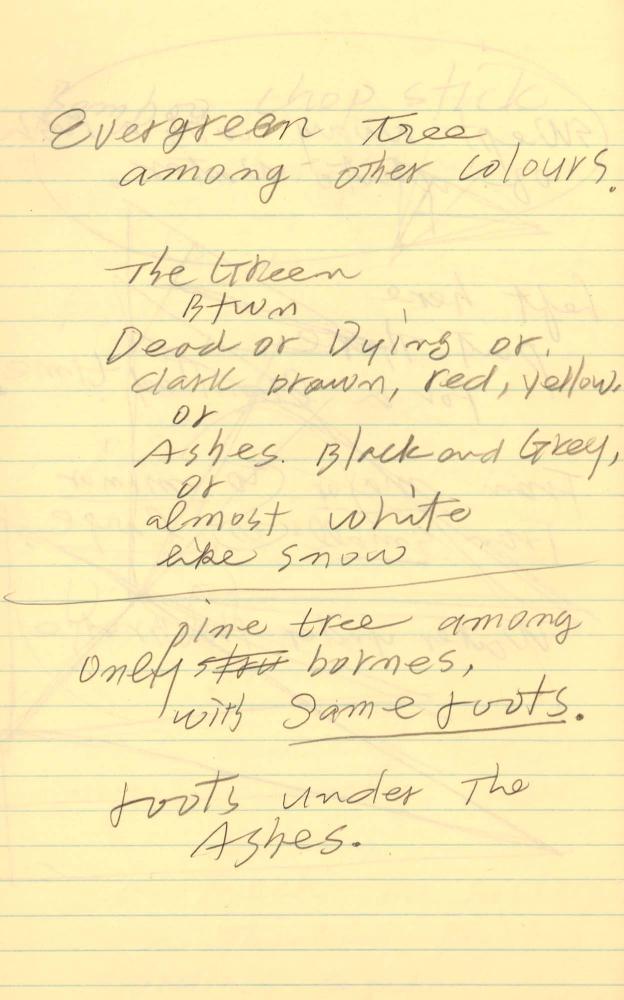 Evergreen tree
among other colours.
The Green
Btwn
Dead or Dying or.
dark brawn, red, yellow.
or
Ashes. Black and Grey,
or
almost white
like snow
pine tree among
Only bornes,
with Same roots.
roots under The
Ashes.